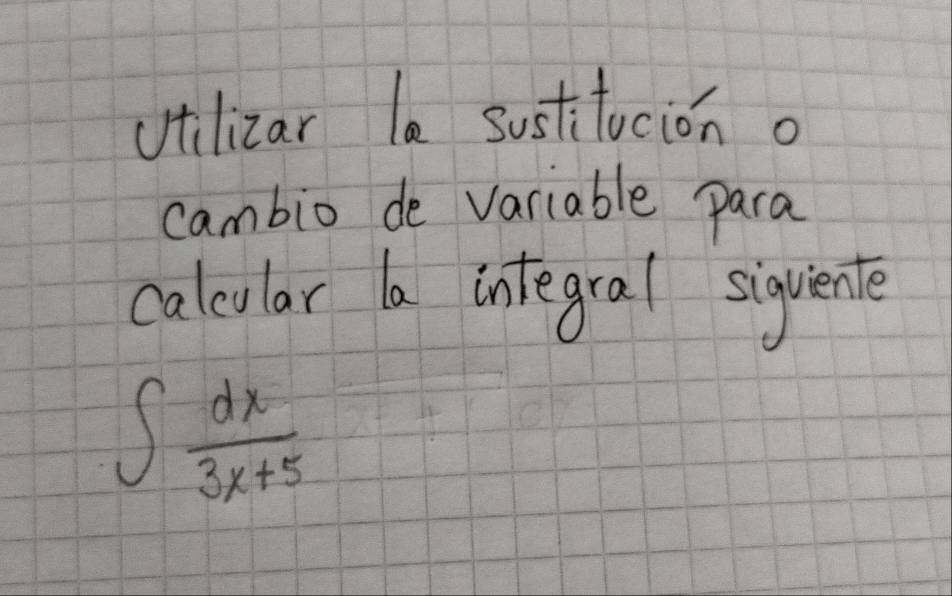 Utilizar la sustitución o
cambio de variable para
calcular la integral siguiente
∫ dx / 3x+5